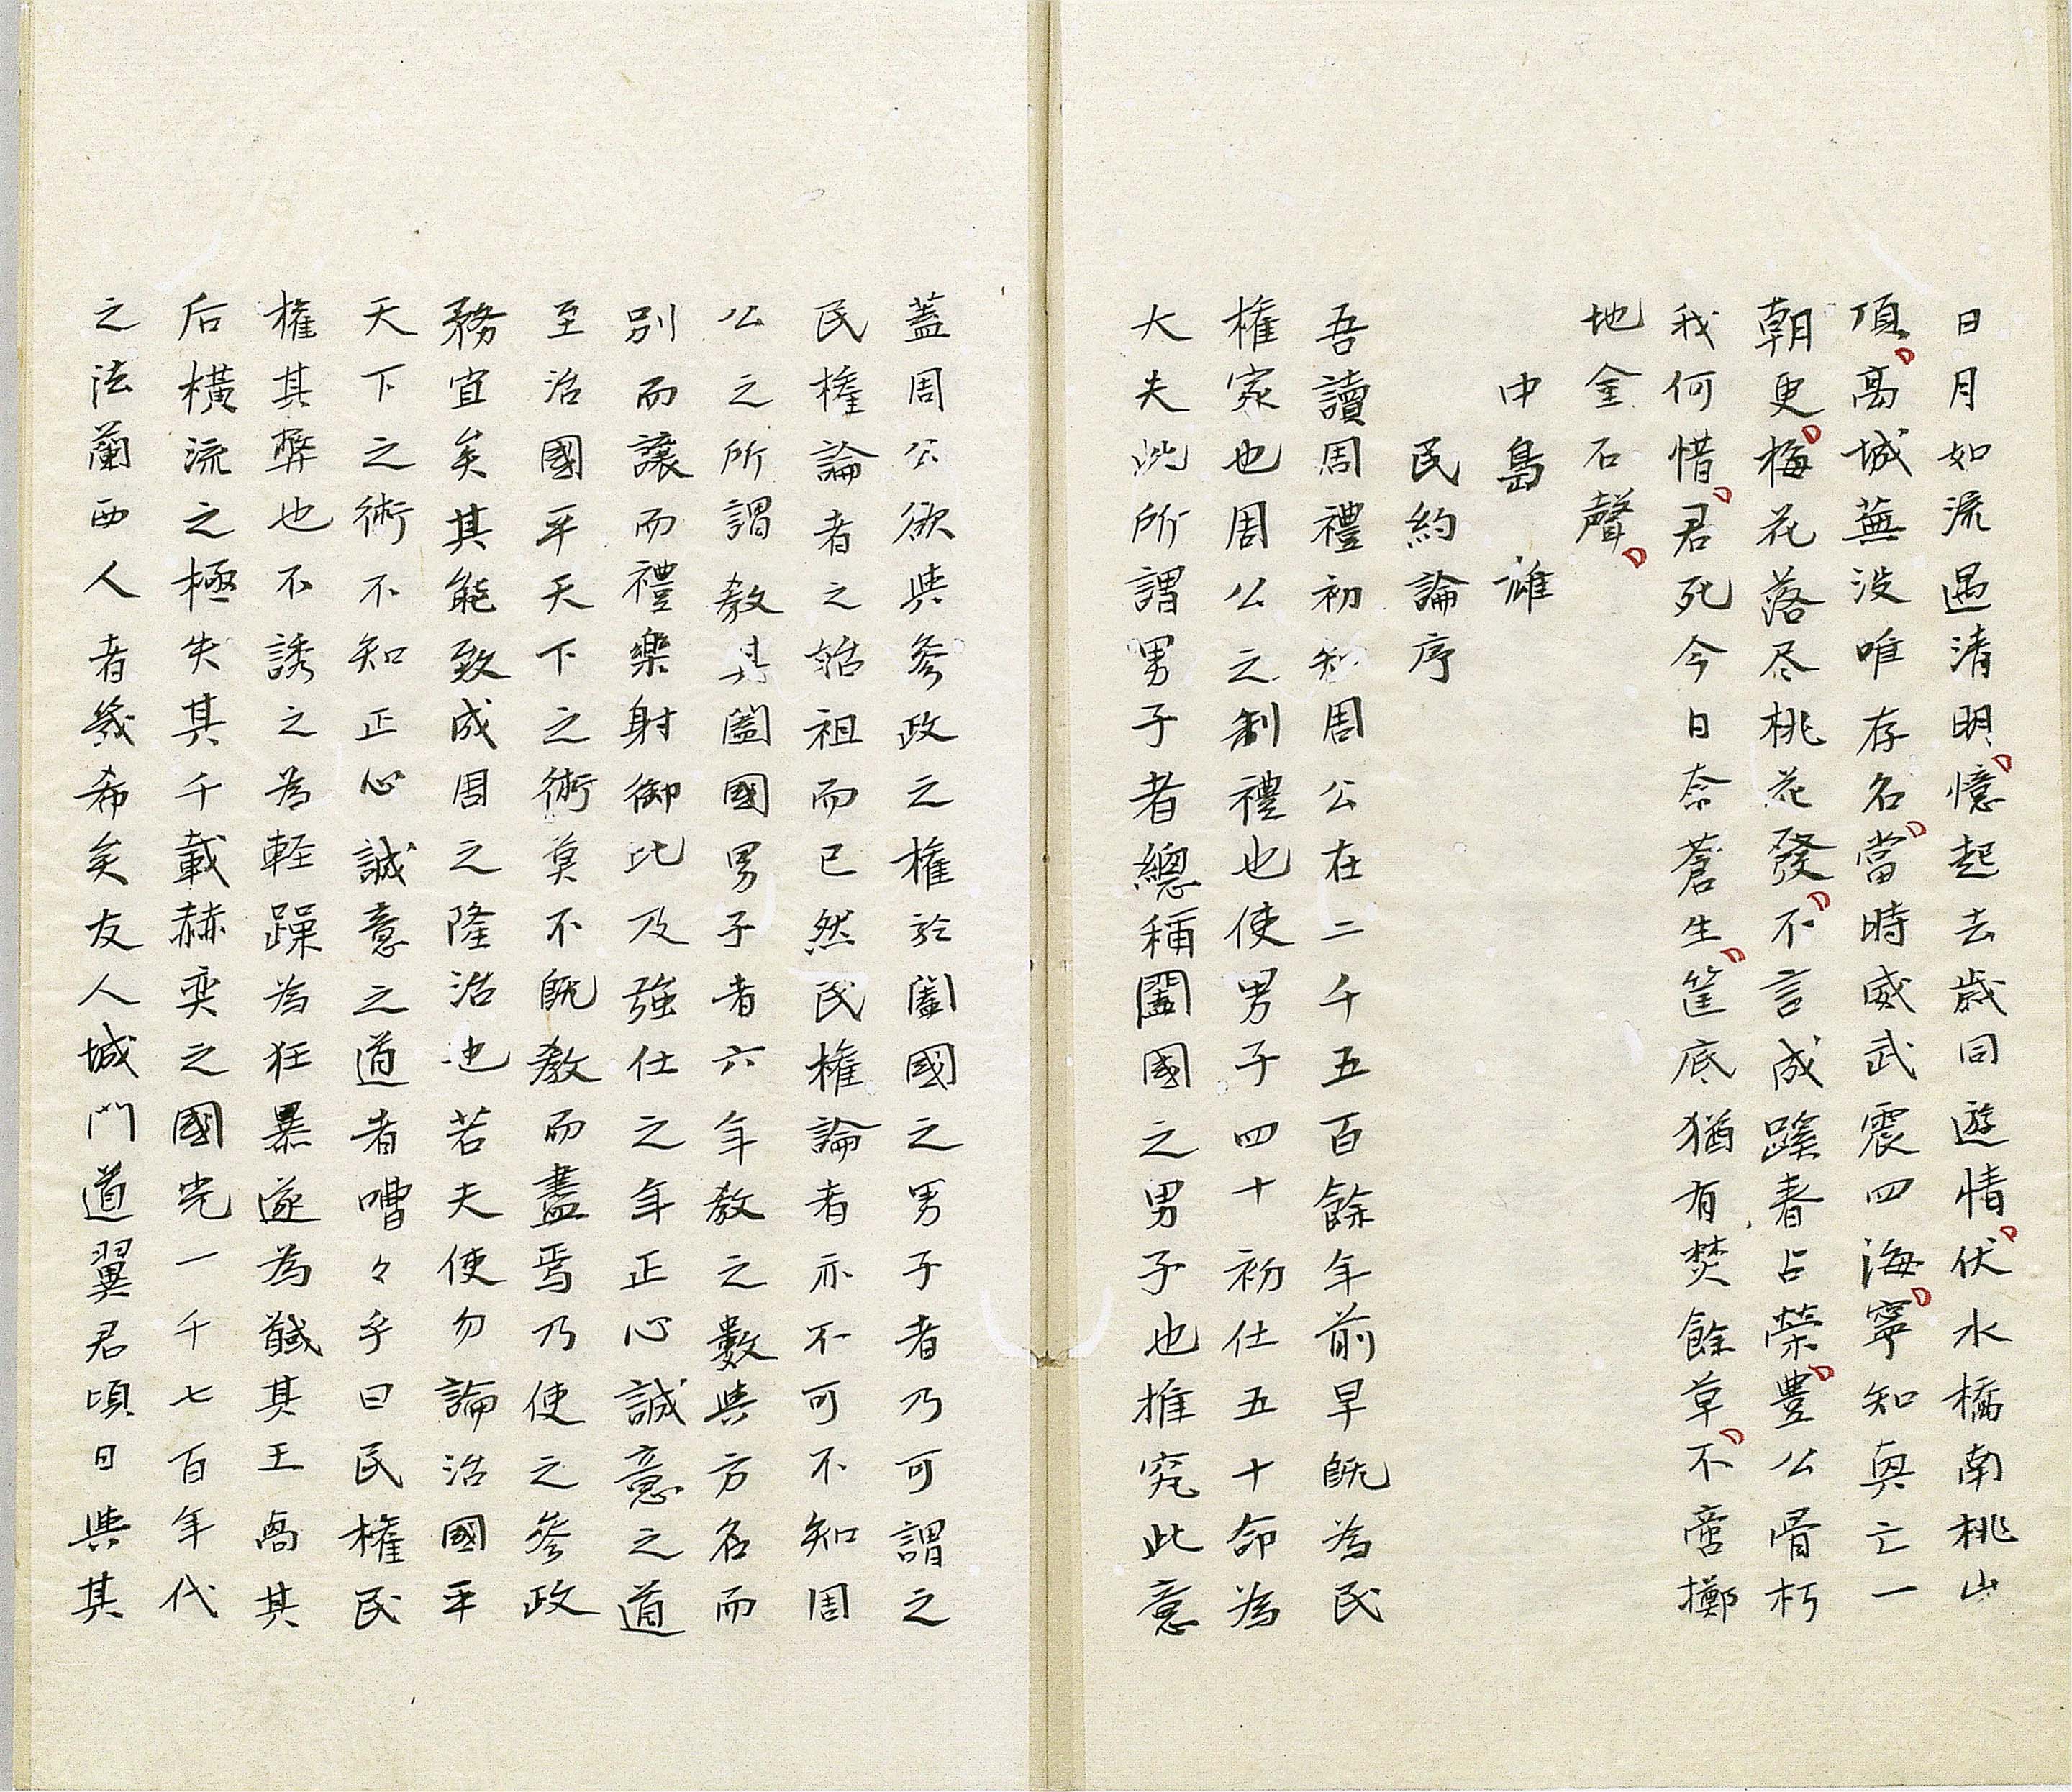 日月如流遇清明憶起去歳同遊情伏水橋南桃山
頂高城蕪没唯存名當時威武震四海寧知興亡一
朝更梅花落尽桃花發不言成蹊春占榮豊公骨朽
我何惜君死今日奈蒼生筐底猶有焚餘草不啻擲
地金石聲
中島 雄
民約論序
吾讀周禮初知周公在二千五百餘年前早既為民
権家也周公之制禮也使男子四十初仕五十命為
大夫此所謂男子者總稱闔國之男子也推究此意
蓋周公欲與参政之権於闔國之男子者乃可謂之
民権論者之始祖而已然民権論者亦不可不知周
公之所謂教其闔國男子者六年教之數與方名而
別而譲而禮樂射御比及強仕之年正心誠意之道
至治國平天下之術莫不既教而盡焉乃使之参政
務宜矣其能致成周之隆治也若夫使勿論治國平
天下之術不知正心誠意之道者嘈々乎曰民権民
権其弊也不誘之為軽躁為狂暴遂為馘其王禼其
后横流之極失其千載赫奕之國光一千七百年代
之法蘭西人者幾希矣友人城門道翼君頃日與其